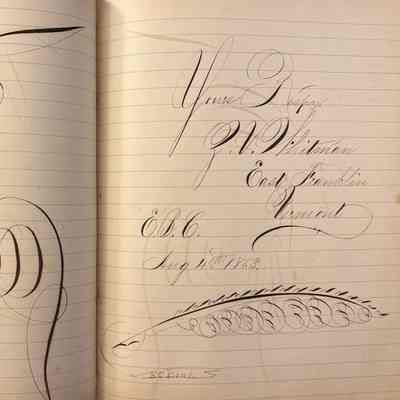 Yours Respy
Z. V. Whitman
East Franklin
Vermont
E. B. C.
Aug 4th 1863.